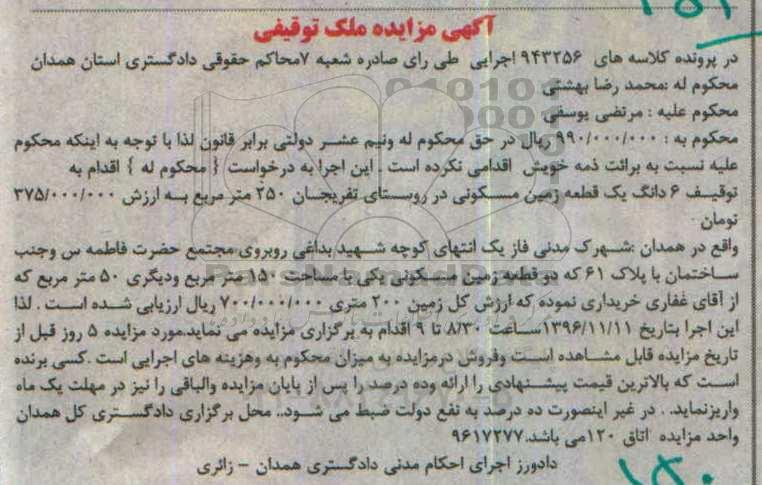 آگهی مزایده ملک توقیفی
در پرونده کلاسه های ۹۴۳۲۵۶ اجرایی طی رای صادره شعبه ۷محاکم حقوقی دادگستری استان همدان
محکوم له :محمد رضا بهشتی
محکوم علیه : مرتضی یوسفی
محکوم به : ۹۹۰/۰۰۰/۰۰۰ ریال در حق محکوم له ونیم عشر دولتی برابر قانون لذا با توجه به اینکه محکوم
علیه نسبت به برائت ذمه خویش اقدامی نکرده است . این اجرا به درخواست { محکوم له } اقدام به
توقیف ۶ دانگ یک قطعه زمین مسکونی در روستای تفریجان ۲۵۰ متر مربع به ارزش ۳۷۵/۰۰۰/۰۰۰
تومان
واقع در همدان :شهرک مدنی فاز یک انتهای کوچه شهید بداغی روبروی مجتمع حضرت فاطمه س وجنب
ساختمان با پلاک ۶۱ که دو قطعه زمین مسکونی یکی با مساحت ۱۵۰ متر مربع ودیگری ۵۰ متر مربع که
از آقای غفاری خریداری نموده که ارزش کل زمین ۲۰۰ متری ۷۰۰/۰۰۰/۰۰۰ ریال ارزیابی شده است . لذا
این اجرا بتاریخ ۱۳۹۶/۱۱/۱۱ساعت ۸/۳۰ تا ۹ اقدام به برگزاری مزایده می نماید.مورد مزایده ۵ روز قبل از
تاریخ مزایده قابل مشاهده است وفروش درمزایده به میزان محکوم به وهزینه های اجرایی است .کسی برنده
است که بالاترین قیمت پیشنهادی را ارائه وده درصد را پس از پایان مزایده والباقی را نیز در مهلت یک ماه
واریزنماید. . در غیر اینصورت ده درصد به نفع دولت ضبط می شود.. محل برگزاری دادگستری کل همدان
واحد مزایده اتاق ۱۲۰می باشد.۹۶۱۷۲۷۷
دادورز اجرای احکام مدنی دادگستری همدان - زائری